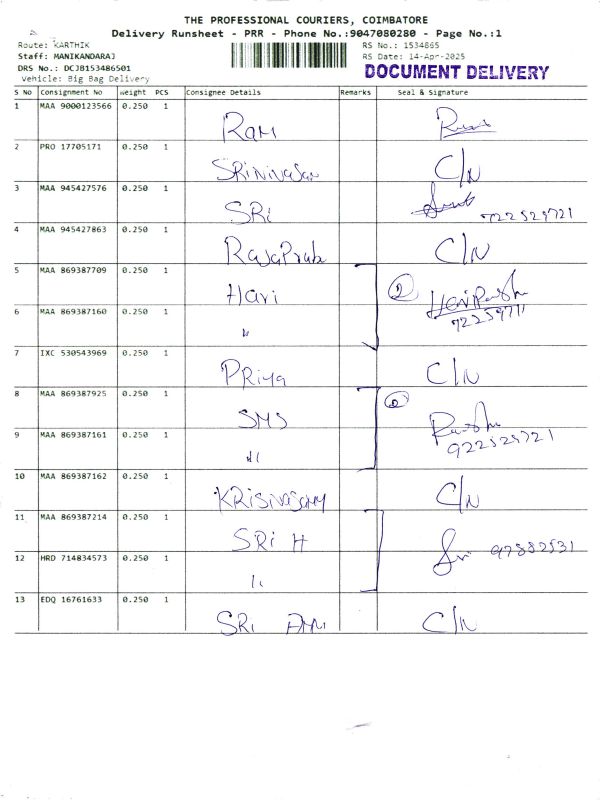 THE PROFESSIONAL COURIERS, COIMBATORE
Delivery Runsheet - PRR - Phone No.:9047080280 - Page No.:1
Route: KARTHIK RS No.: 1534865
Staff: MANIKANDARAJ RS Date: 14-Apr-2025
DRS No.: DCJB153486501 DOCUMENT DELIVERY
Vehicle: Big Bag Delivery
S No Consignment No Weight PCS Consignee Details Remarks Seal & Signature
1 MAA 9000123566 0.250 1 RAM
2 PRO 17705171 0.250 1 SRiNivaSan C/N
3 MAA 945427576 0.250 1 SRi
4 MAA 945427863 0.250 1 C/N
5 MAA 869387709 0.250 1 Hari 2
6 MAA 869387160 0.250 1 "
7 IXC 530543969 0.250 1 PRiya C/N
8 MAA 869387925 0.250 1 SMS 2
9 MAA 869387161 0.250 1 "
10 MAA 869387162 0.250 1 C/N
11 MAA 869387214 0.250 1 SRi H
12 HRD 714834573 0.250 1 "
13 EDQ 16761633 0.250 1 SRi C/N